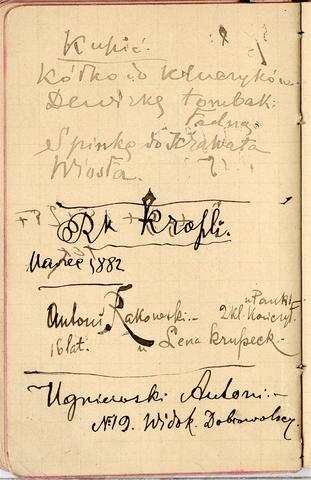 Kupić.
Kółko do kluczyków
Dewizkę tombak.
ładną.
Spinkę do Krawata
Wiosła.
Rk kropli.
Marzec 1882
Antoni Rakowski.-
2 kl. Kończył
16 lat.
u Lena Krupeck.-
Ugniewski Antoni.-
№ 19. Widok. Dobrowolscy.